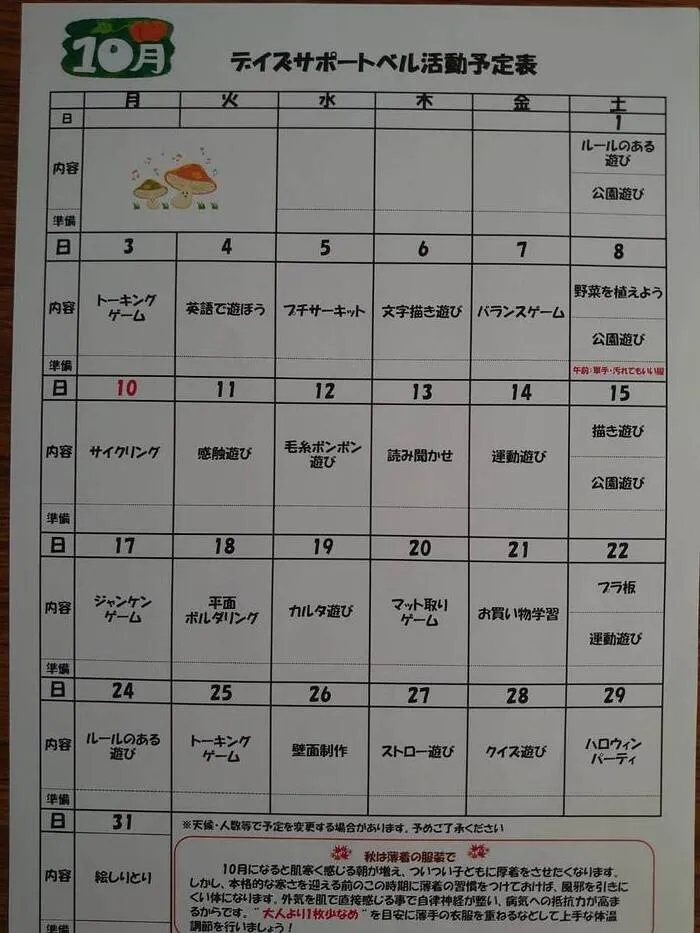 10月
デイズサポートベル活動予定表
月 火 水 木 金 土
日 1
内容 ルールのある
遊び
公園遊び
準備
日 3 4 5 6 7 8
内容 トーキング
ゲーム 英語で遊ぼう プチサーキット 文字描き遊び バランスゲーム 野菜を植えよう
公園遊び
準備 午前:軍手・汚れてもいい服
日 10 11 12 13 14 15
内容 サイクリング 感触遊び 毛糸ポンポン
遊び 読み聞かせ 運動遊び 描き遊び
公園遊び
準備
日 17 18 19 20 21 22
内容 ジャンケン
ゲーム 平面
ボルダリング カルタ遊び マット取り
ゲーム お買い物学習 プラ板
運動遊び
準備
日 24 25 26 27 28 29
内容 ルールのある
遊び トーキング
ゲーム 壁面制作 ストロー遊び クイズ遊び ハロウィン
パーティ
準備
日 31
内容 絵しりとり
準備
※天候・人数等で予定を変更する場合があります。予めご了承ください
秋は薄着の服装で
10月になると肌寒く感じる朝が増え、ついつい子どもに厚着をさせたくなります。
しかし、本格的な寒さを迎える前のこの時期に薄着の習慣をつけておけば、風邪を引きに
くい体になります。外気を肌で直接感じる事で自律神経が整い、病気への抵抗力が高ま
るからです。"大人より1枚少なめ"を目安に薄手の衣服を重ねるなどして上手な体温
調節を行いましょう!